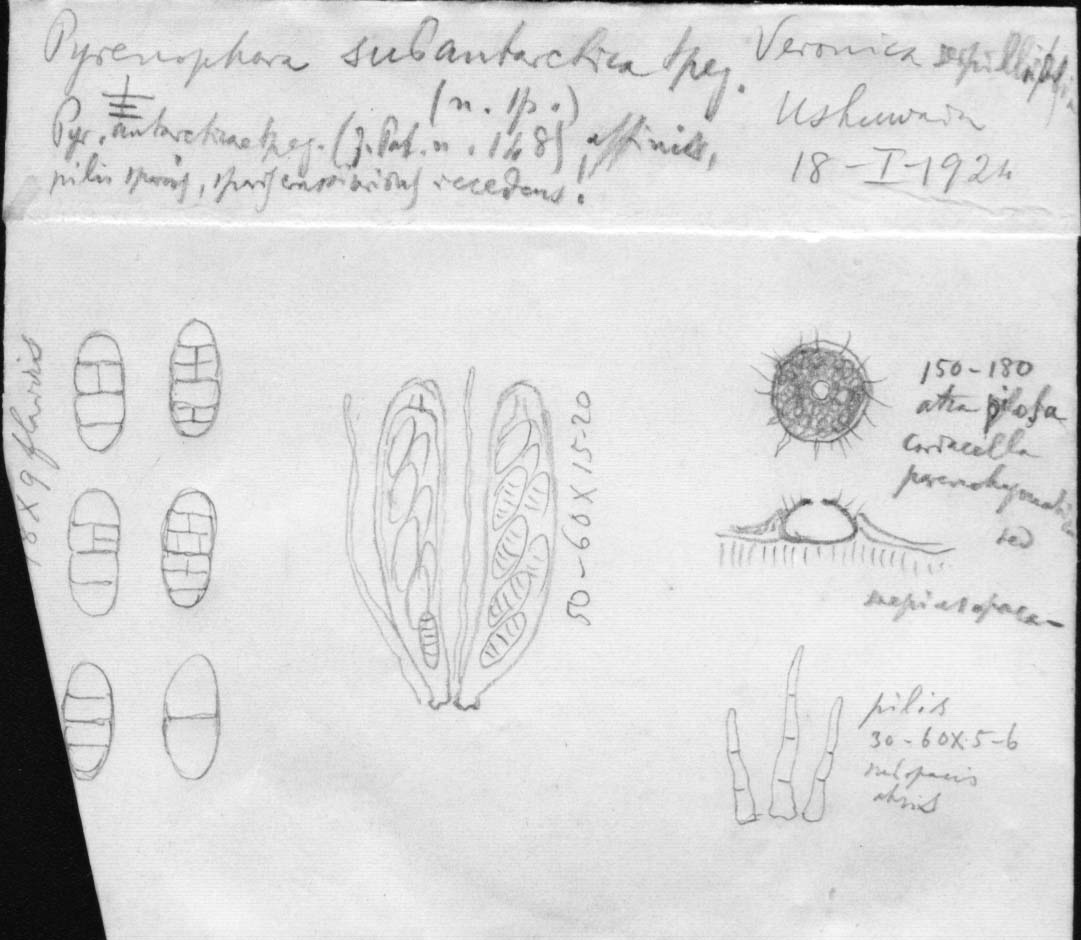 Pyrenophora subantarctica Speg.
(n. sp.)
Pyr. antarcticae Speg. (F. Pat. n. 148) affinis,
pilis sporis, recedens!
Veronica
Ushuwaia
18-I-1924
18 X 9 fluvis
50-60 X 15-20
150-180
atra pilosa
coriacella
parenchymatica
sed
opaca
pilis
30-60 X 5-6
atris